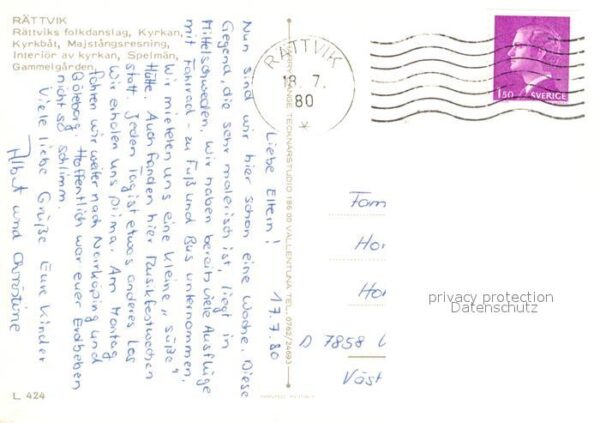 RÄTTVIK
Rättviks folkdanslag, Kyrkan,
Kyrkbåt, Majstångsresning,
Interiör av kyrkan, Spelmän,
Gammelgården.
17.7.80
Liebe Eltern!
Nun sind wir hier schon eine Woche. Diese
Gegend, die sehr malerisch ist, liegt in
Mittelschweden. Wir haben bereits viele Ausflüge
mit Fahrrad - zu Fuß und Bus unternommen.
Wir mieteten uns eine kleine "süße"
Hütte. Auch fanden hier Musikfestwochen
statt. Jeden Tag ist etwas anderes los
Wir erholen uns prima. Am Montag
fahren wir weiter nach Norrköping und
Göteborg. Hoffentlich war euer Erdbeben
nicht so schlimm.
Viele liebe Grüße Eure Kinder
Albert und Christine
L 424
TECKNARSTUDIO 186 00 VALLENTUNA TEL. 0762/24693
RÄTTVIK
18.7.
80
1.50 SVERIGE
Fam
Hor
Ho
D 7858
Väst
privacy protection
Datenschutz